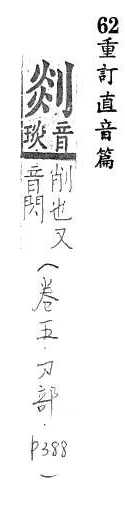 62重訂直音篇
剡
音琰
削也又
音閃
(卷五·刀部·P388)